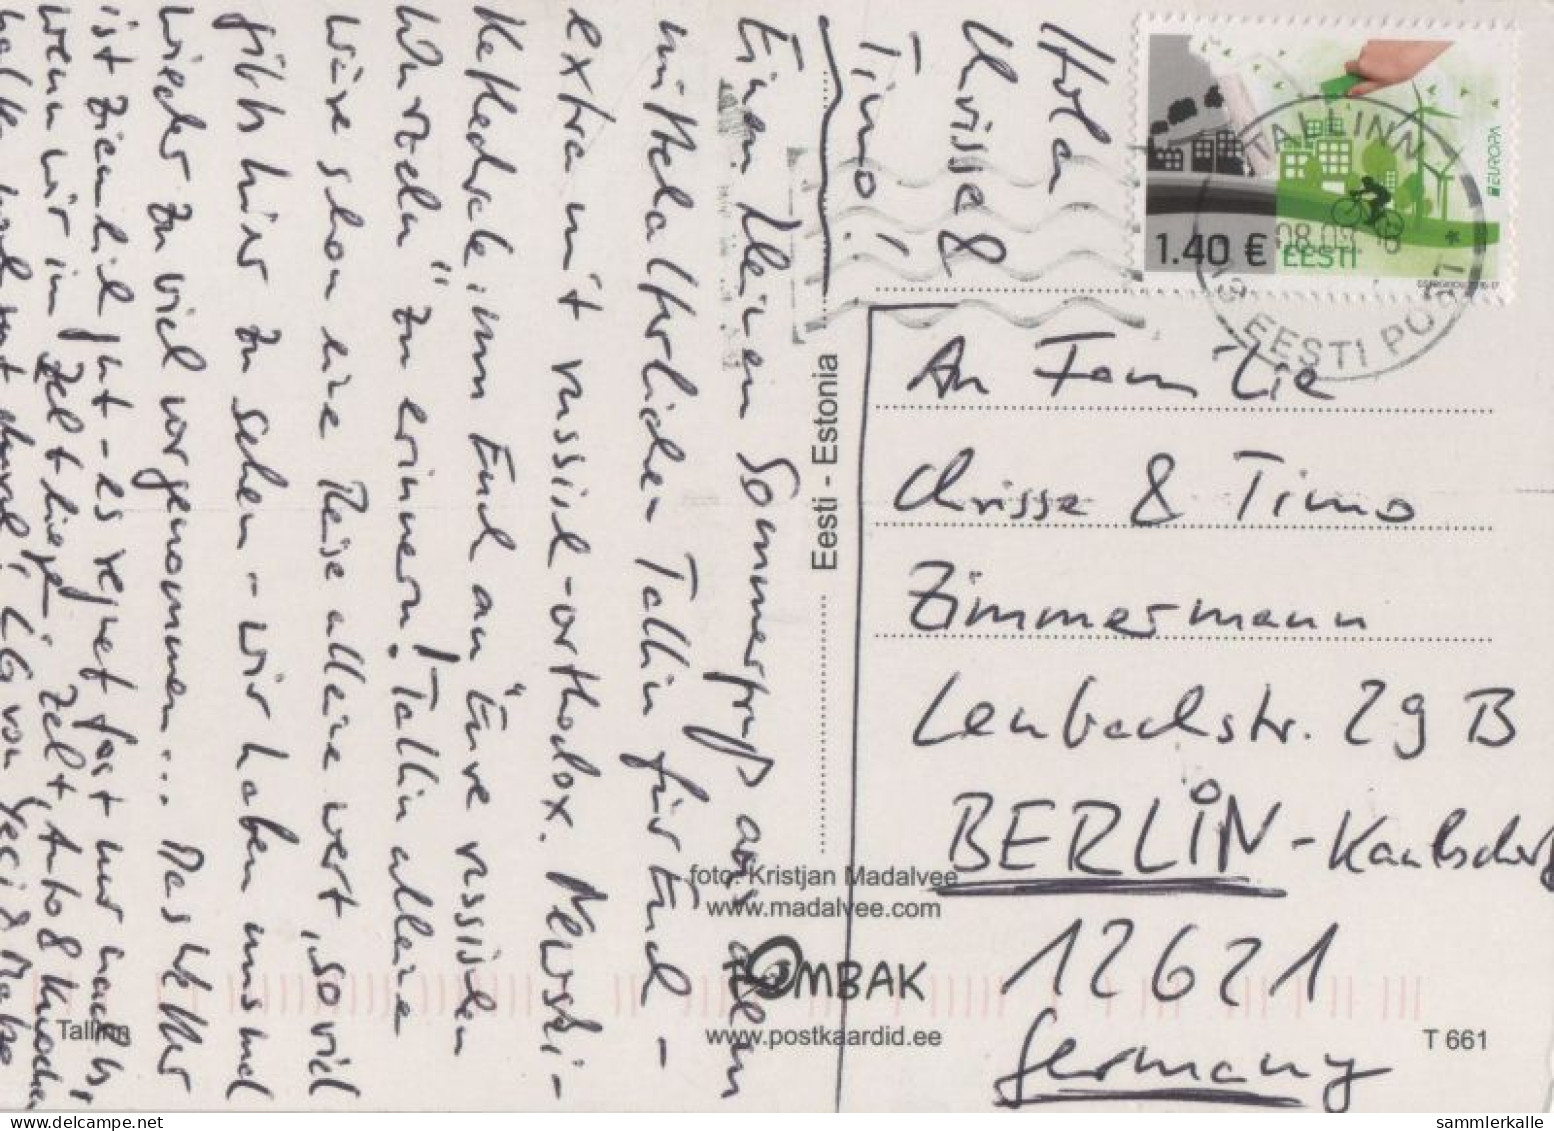 Hola
Chrissa &
Timo!
Einen kleinen Sommergruß aus dem
mittelalterlichen Tallin für Euch -
extra mit russisch-orthodox. Newski-
Kathedrale, um Euch an "Eure russischen
Wurzeln" zu erinnern! Tallin alleine
wäre schon eine Reise alleine wert, so viel
gibts hier zu sehen - wir haben uns mal
wieder zu viel vorgenommen... Das Wetter
ist ziemlich gut - es regnet fast nur nachts,
wenn wir im Zelt liegen. Zelt, Auto & Knochen
halten
LG von
1.40 €
EESTI
EUROPA
TALLINN
EESTI POST
Eesti - Estonia
An Familie
Chrissa & Timo
Zimmermann
Lenbachstr. 29 B
BERLIN - Kaulsdorf
12621
Germany
foto: Kristjan Madalvee
www.madalvee.com
OMBAK
www.postkaardid.ee
Tallinn
T 661
sammlerkalle